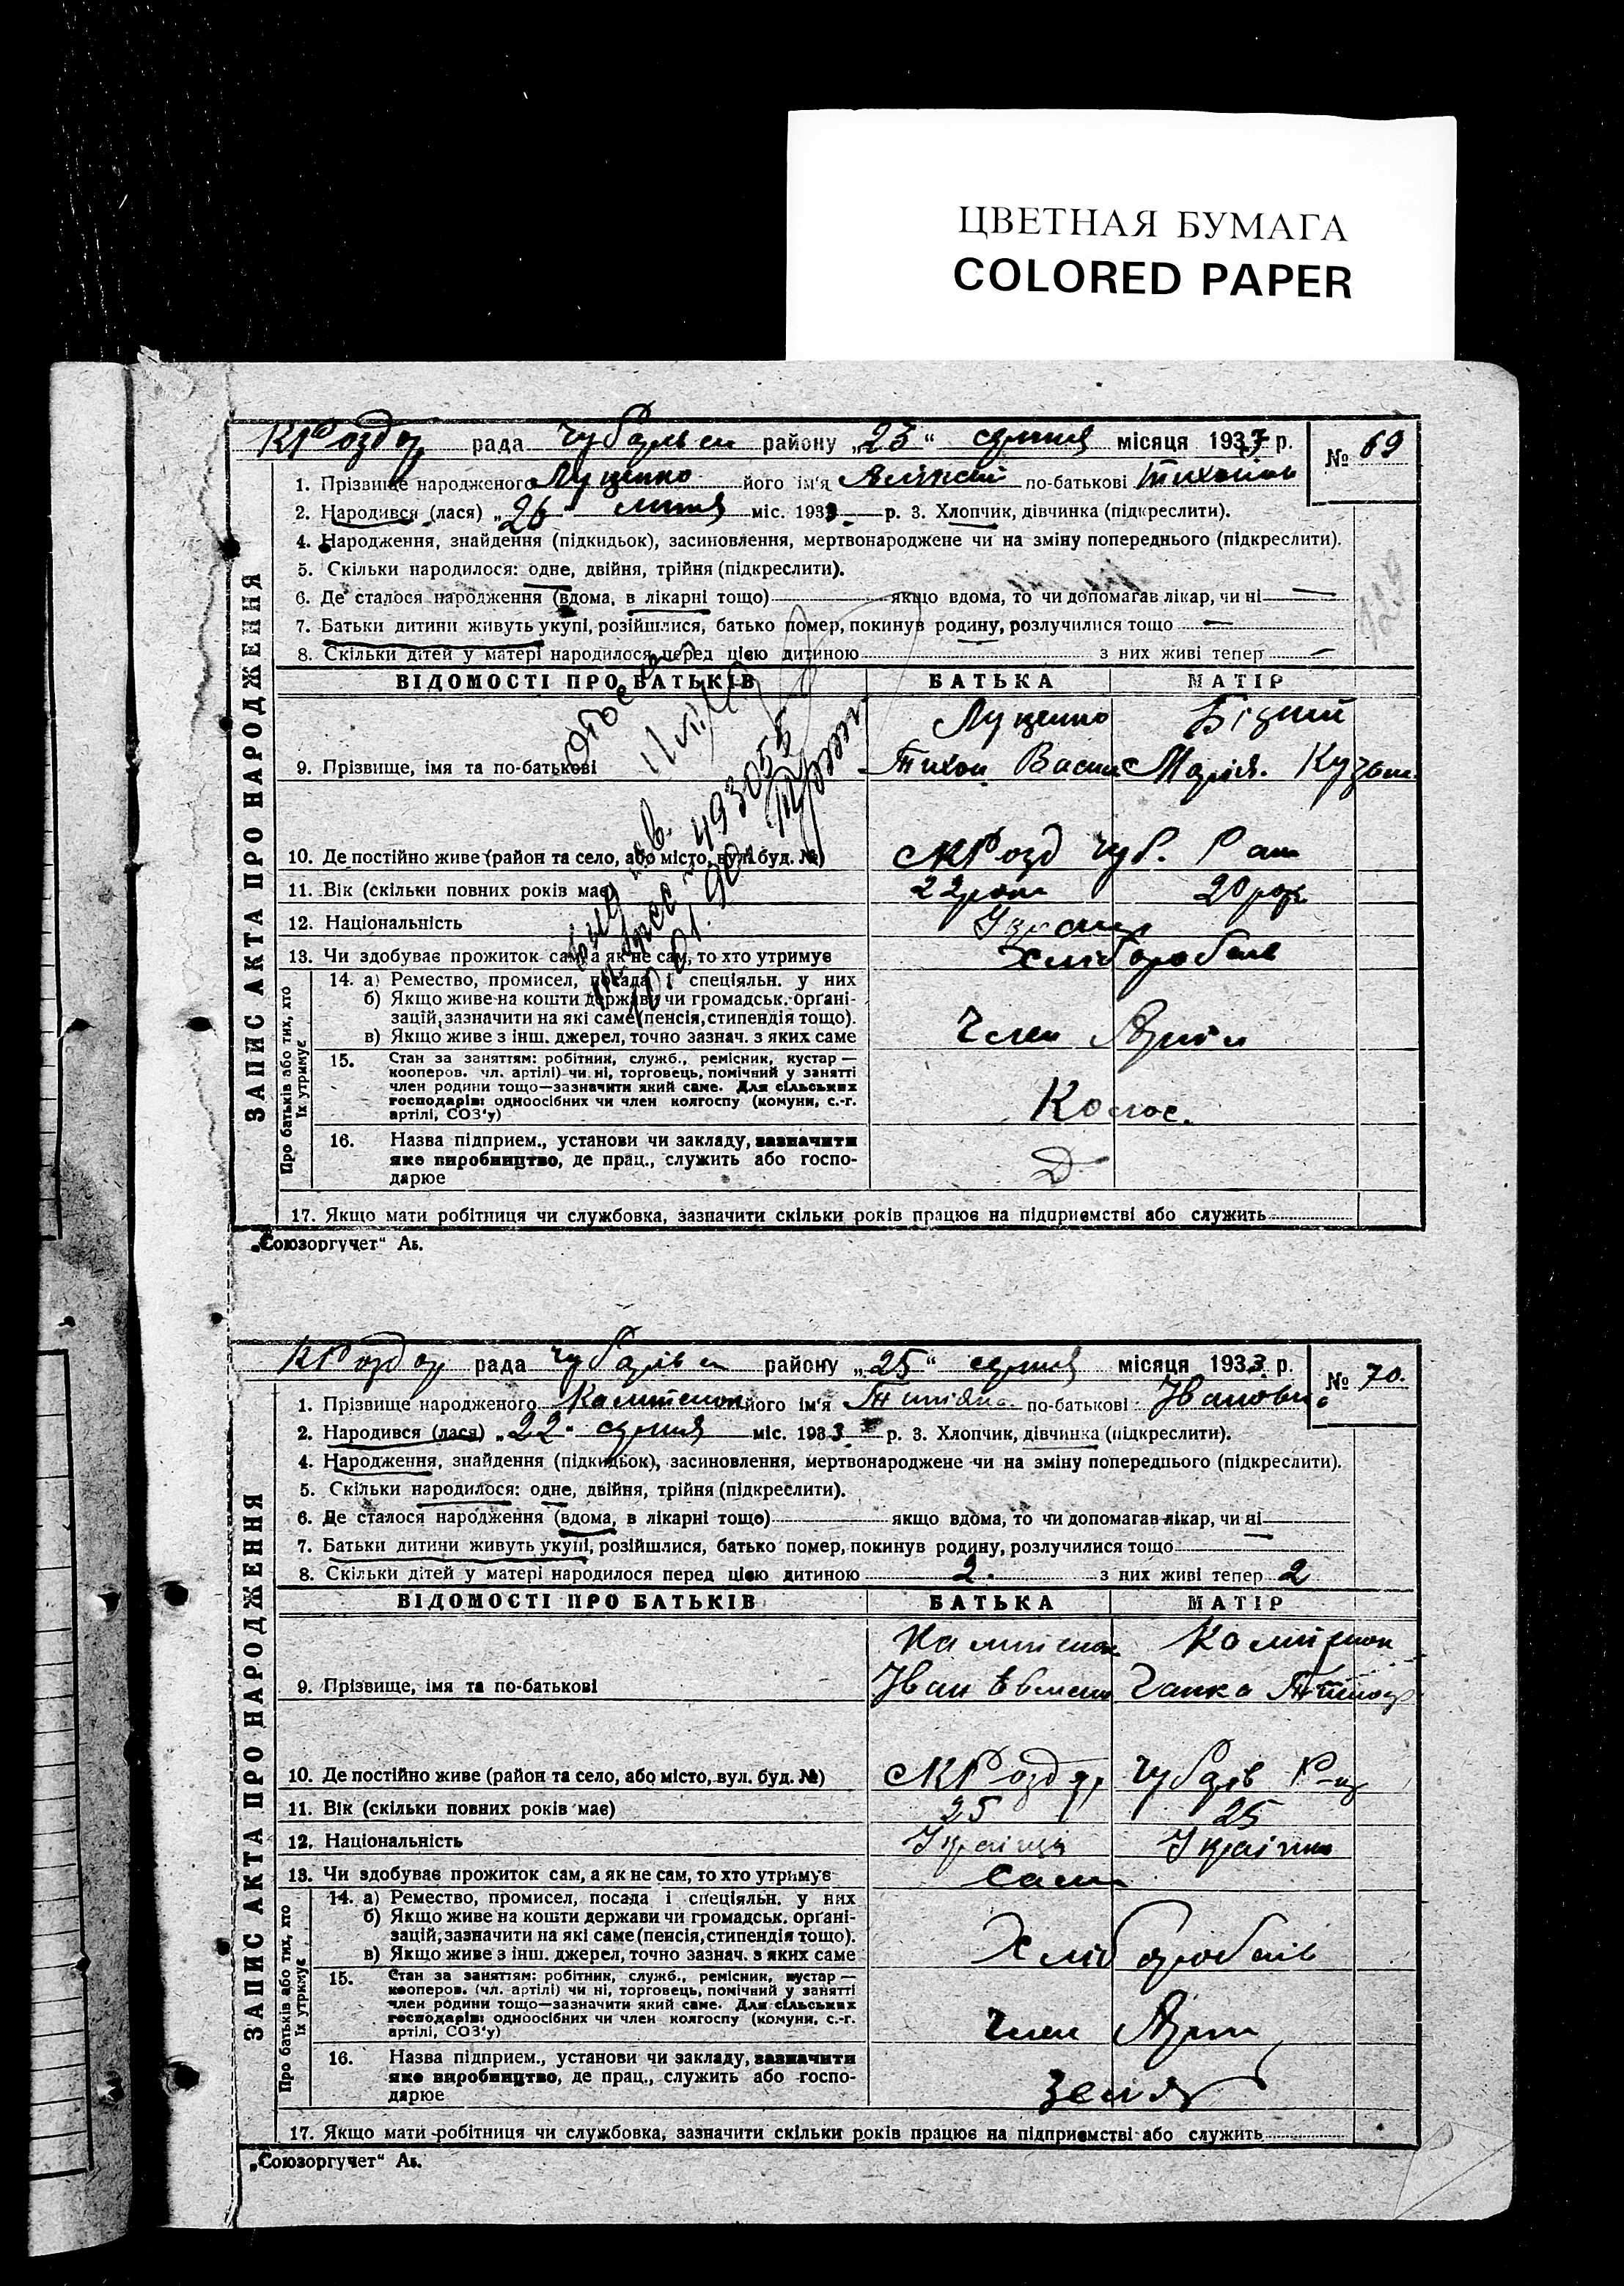 ЦВЕТНАЯ БУМАГА
COLORED PAPER
рада районy „23“ серпня місяця 1933 р. № 69
ЗАПИС АКТА ПРО НАРОДЖЕННЯ
1. Прізвище народженого Луценко його ім'я по-батькові
2. Народився (лася) „26“ липня міс. 1933 р. 3. Хлопчик, дівчинка (підкреслити).
4. Народження, знайдення (підкидьок), засиновлення, мертвонароджене чи на зміну попереднього (підкреслити).
5. Скільки народилося: одне, двійня, трійня (підкреслити).
6. Де сталося народження (вдома, в лікарні тощо) якщо вдома, то чи допомагав лікар, чи ні —
7. Батьки дитини живуть укупі, розійшлися, батько помер, покинув родину, розлучилися тощо —
8. Скільки дітей у матері народилося перед цією дитиною з них живі тепер —
ВІДОМОСТІ ПРО БАТЬКІВ БАТЬКА МАТІР
Луценко
9. Прізвище, імя та по-батькові Тихон Васил Марія. Кузьм.
10. Де постійно живе (район та село, або місто, вул. буд. №) Чуб.
11. Вік (скільки повних років має) 22 рок 20 рок
12. Національність
13. Чи здобуває прожиток сам, а як не сам, то хто утримує Хлібороби
Про батьків або тих, хто їх утримує
14. а) Ремество, промисел, посада і спеціяльн. у них
б) Якщо живе на кошти держави чи громадськ. орґані-
зацій, зазначити на які саме (пенсія, стипендія тощо).
в) Якщо живе з інш. джерел, точно зазнач. з яких саме Член
15. Стан за заняттям: робітник, служб., ремісник, кустар —
кооперов. чл. артілі) чи ні, торговець, помічний у занятті
член родини тощо—зазначити який саме. Для сільських
господарів: одноосібних чи член колгоспу (комуни, с.-г.
артілі, СОЗ'у) Колос.
16. Назва підприєм., установи чи закладу, зазначити
яке виробництво, де прац., служить або госпо-
дарює
17. Якщо мати робітниця чи службовка, зазначити скільки років працює на підприємстві або служить
„Союзоргучет“ Аь.
493055
рада району „25“ серпня місяця 1933 р. № 70.
ЗАПИС АКТА ПРО НАРОДЖЕННЯ
1. Прізвище народженого його ім'я по-батькові Івановн
2. Народився (лася) „22“ серпня міс. 1933 р. 3. Хлопчик, дівчинка (підкреслити).
4. Народження, знайдення (підкидьок), засиновлення, мертвонароджене чи на зміну попереднього (підкреслити).
5. Скільки народилося: одне, двійня, трійня (підкреслити).
6. Де сталося народження (вдома, в лікарні тощо) якщо вдома, то чи допомагав лікар, чи ні
7. Батьки дитини живуть укупі, розійшлися, батько помер, покинув родину, розлучилися тощо
8. Скільки дітей у матері народилося перед цією дитиною 2. з них живі тепер 2
ВІДОМОСТІ ПРО БАТЬКІВ БАТЬКА МАТІР
9. Прізвище, імя та по-батькові Іван Ганка
10. Де постійно живе (район та село, або місто, вул. буд. №)
11. Вік (скільки повних років має) 25 25
12. Національність
13. Чи здобуває прожиток сам, а як не сам, то хто утримує сам
Про батьків або тих, хто їх утримує
14. а) Ремество, промисел, посада і спеціяльн. у них
б) Якщо живе на кошти держави чи громадськ. орґані-
зацій, зазначити на які саме (пенсія, стипендія тощо).
в) Якщо живе з інш. джерел, точно зазнач. з яких саме Хлібороби
15. Стан за заняттям: робітник, служб., ремісник, кустар —
кооперов. (чл. артілі) чи ні, торговець, помічний у занятті
член родини тощо—зазначити який саме. Для сільських
господарів: одноосібних чи член колгоспу (комуни, с.-г.
артілі, СОЗ'у) Член
16. Назва підприєм., установи чи закладу, зазначити
яке виробництво, де прац., служить або госпо-
дарює
17. Якщо мати робітниця чи службовка, зазначити скільки років працює на підприємстві або служить
„Союзоргучет“ Аь.